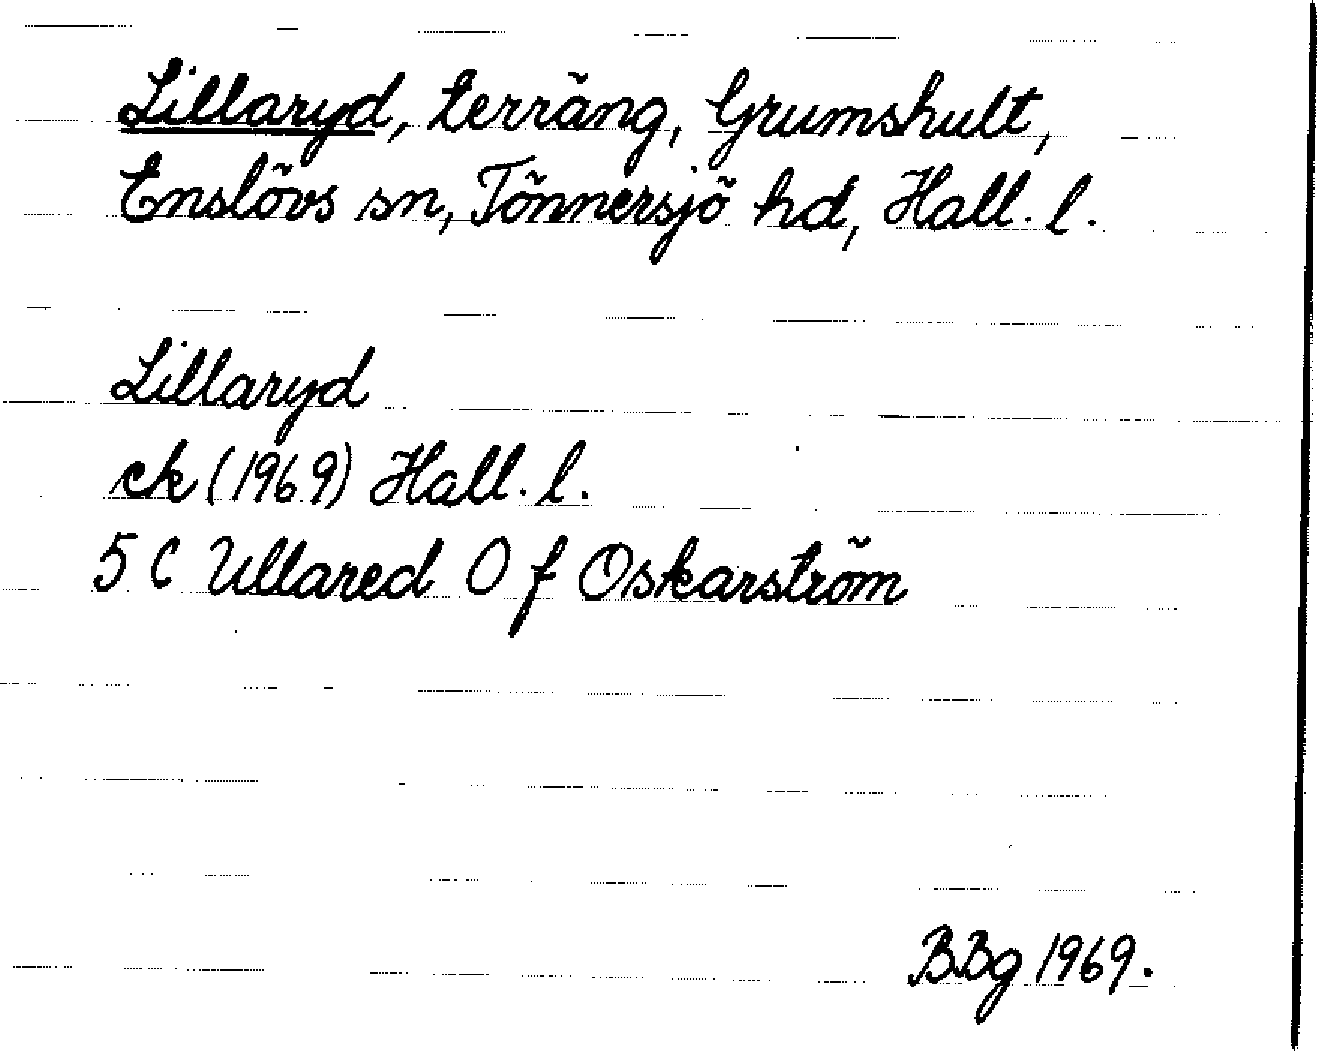 Lillaryd, terräng, Grumshult,
Enslövs sn, Tönnersjö hd, Hall. l.
Lillaryd
ek (1969) Hall. l.
5 C Ullared O f Oskarström
BBg 1969.